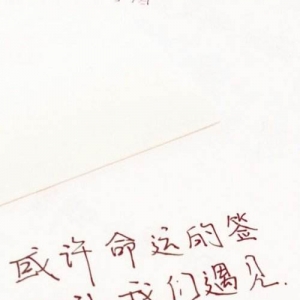 或许命运的签
让我们遇见.